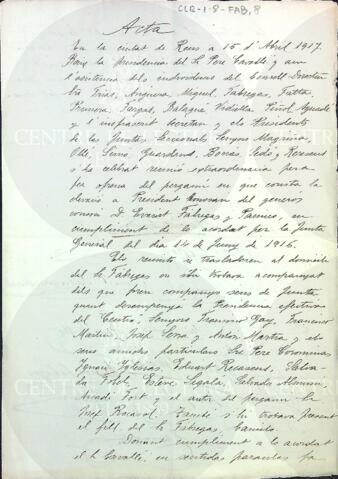 CLR-1-8-FAB,8
Acta
En la ciutat de Reus a 15 d'Abril 1917.
Baix la presidencia del Sr Pere Cavallé y amb
l'asistencia dels individuos del Consell Directiu
Srs Trias, Anguera, Miquel, Fabregas, Fatta,
Primera, Vergas, Balagué,
y l'infrascrit Secretari y els Presidents
de les Juntes Seccionals Senyors Magriñá
Ollé, Serra, Guardená, Borras, Sedó y Recasens
s'ha celebrat reunió extraordinaria pera
fer ofrena del pergamí en que consta la
elevació a President Honorari del generós
consoci D. Evarist Fàbregas y Pamies, en
cumpliment de lo acordat per la Junta
General del día 14 de Juny de 1916.
Els reunits se traslladaren al domicili
del Sr Fàbregas on s'hi trobava acompanyat
dels que foren companys seus de Junta
quant desempenyá la Presidencia efectiva
del Centre, Senyors Francisco Gay, Francisco
Martí, Josep Serra y Anton Martra y els
seus amichs particulars Srs Pere Corominas
Ignasi Iglesias, Eduart Recasens, Salva-
dó Vilella, Esteve Segala,
Font y el autor del pergamí Sr
Josep Rocarol. També s'hi trobava present
el fill del Sr Fàbregas, Camilo.
Donant cumpliment a lo acordat
el Sr Cavallé, en sentidas paraulas fa